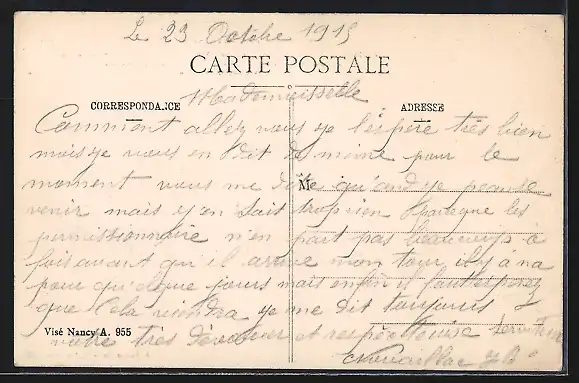 Le 23 Octobre 1915
CARTE POSTALE
Mademoisselle
CORRESPONDANCE
ADRESSE
Comment allez vous je l'espère très bien
mois je vous en dit de même pour le
moment vous me dite qu'and je pense
venir mais j'en sait trop rien parceque les
permissionnaire n'en part pas beaucoup à
fois avant qu'il arrive mon tour il y a na
pour quelque jours mais enfin il faut esperez
que Cela viendra je me dit toujours
M
Visé Nancy A. 955
votre très dévouer et respéctueuse